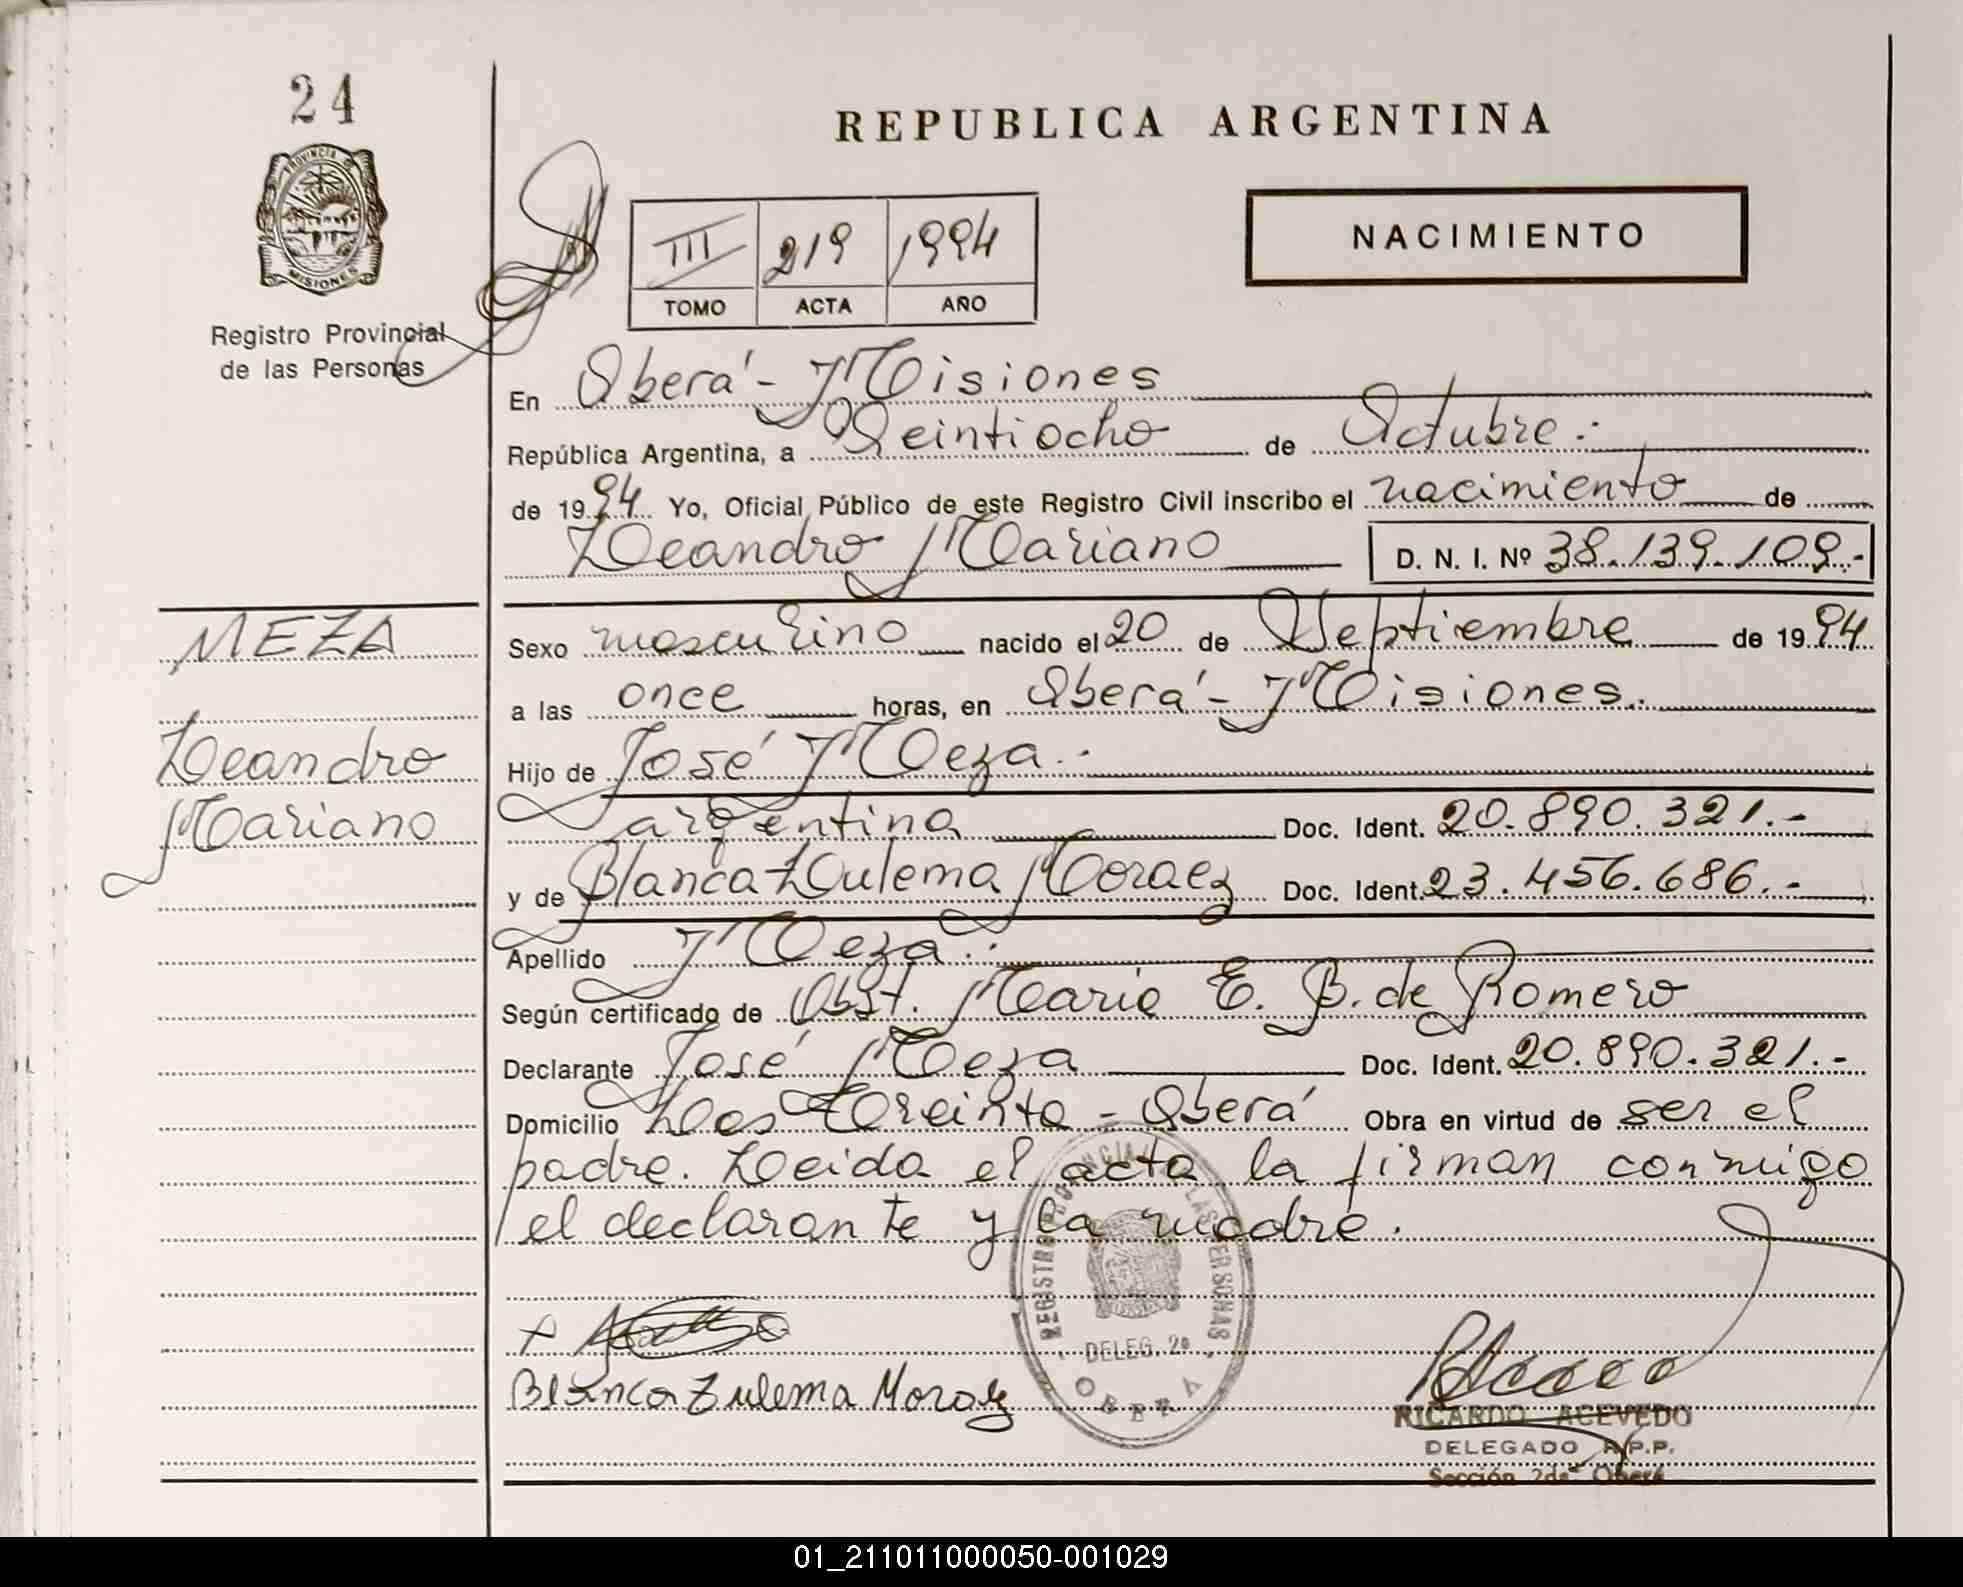 24
PROVINCIA DE
MISIONES
Registro Provincial
de las Personas
REPUBLICA ARGENTINA
III 219 1994
TOMO ACTA AÑO
NACIMIENTO
En Oberá - Misiones
República Argentina, a Veintiocho de Octubre.-
de 1994 Yo, Oficial Público de este Registro Civil inscribo el nacimiento de
Leandro Mariano D. N. I. Nº 38.139.109.-
MEZA
Leandro
Mariano
Sexo masculino nacido el 20 de Septiembre de 1994
a las once horas, en Oberá - Misiones.
Hijo de José Meza.-
argentina Doc. Ident. 20.890.321.-
y de Blanca Zulema Moraez Doc. Ident. 23.456.686.-
Apellido Meza.
Según certificado de Obst. Maria E. B. de Romero
Declarante José Meza Doc. Ident. 20.890.321.-
Domicilio Los - Oberá Obra en virtud de ser el
padre. Leida el acta la firman conmigo
el declarante y la madre.
REGISTRO PROVINCIAL LAS PERSONAS
DELEG. 2ª
OBERA
Blanca Zulema Moraez
RICARDO ACEVEDO
DELEGADO R.P.P.
Sección 2da Oberá
01_211011000050-001029